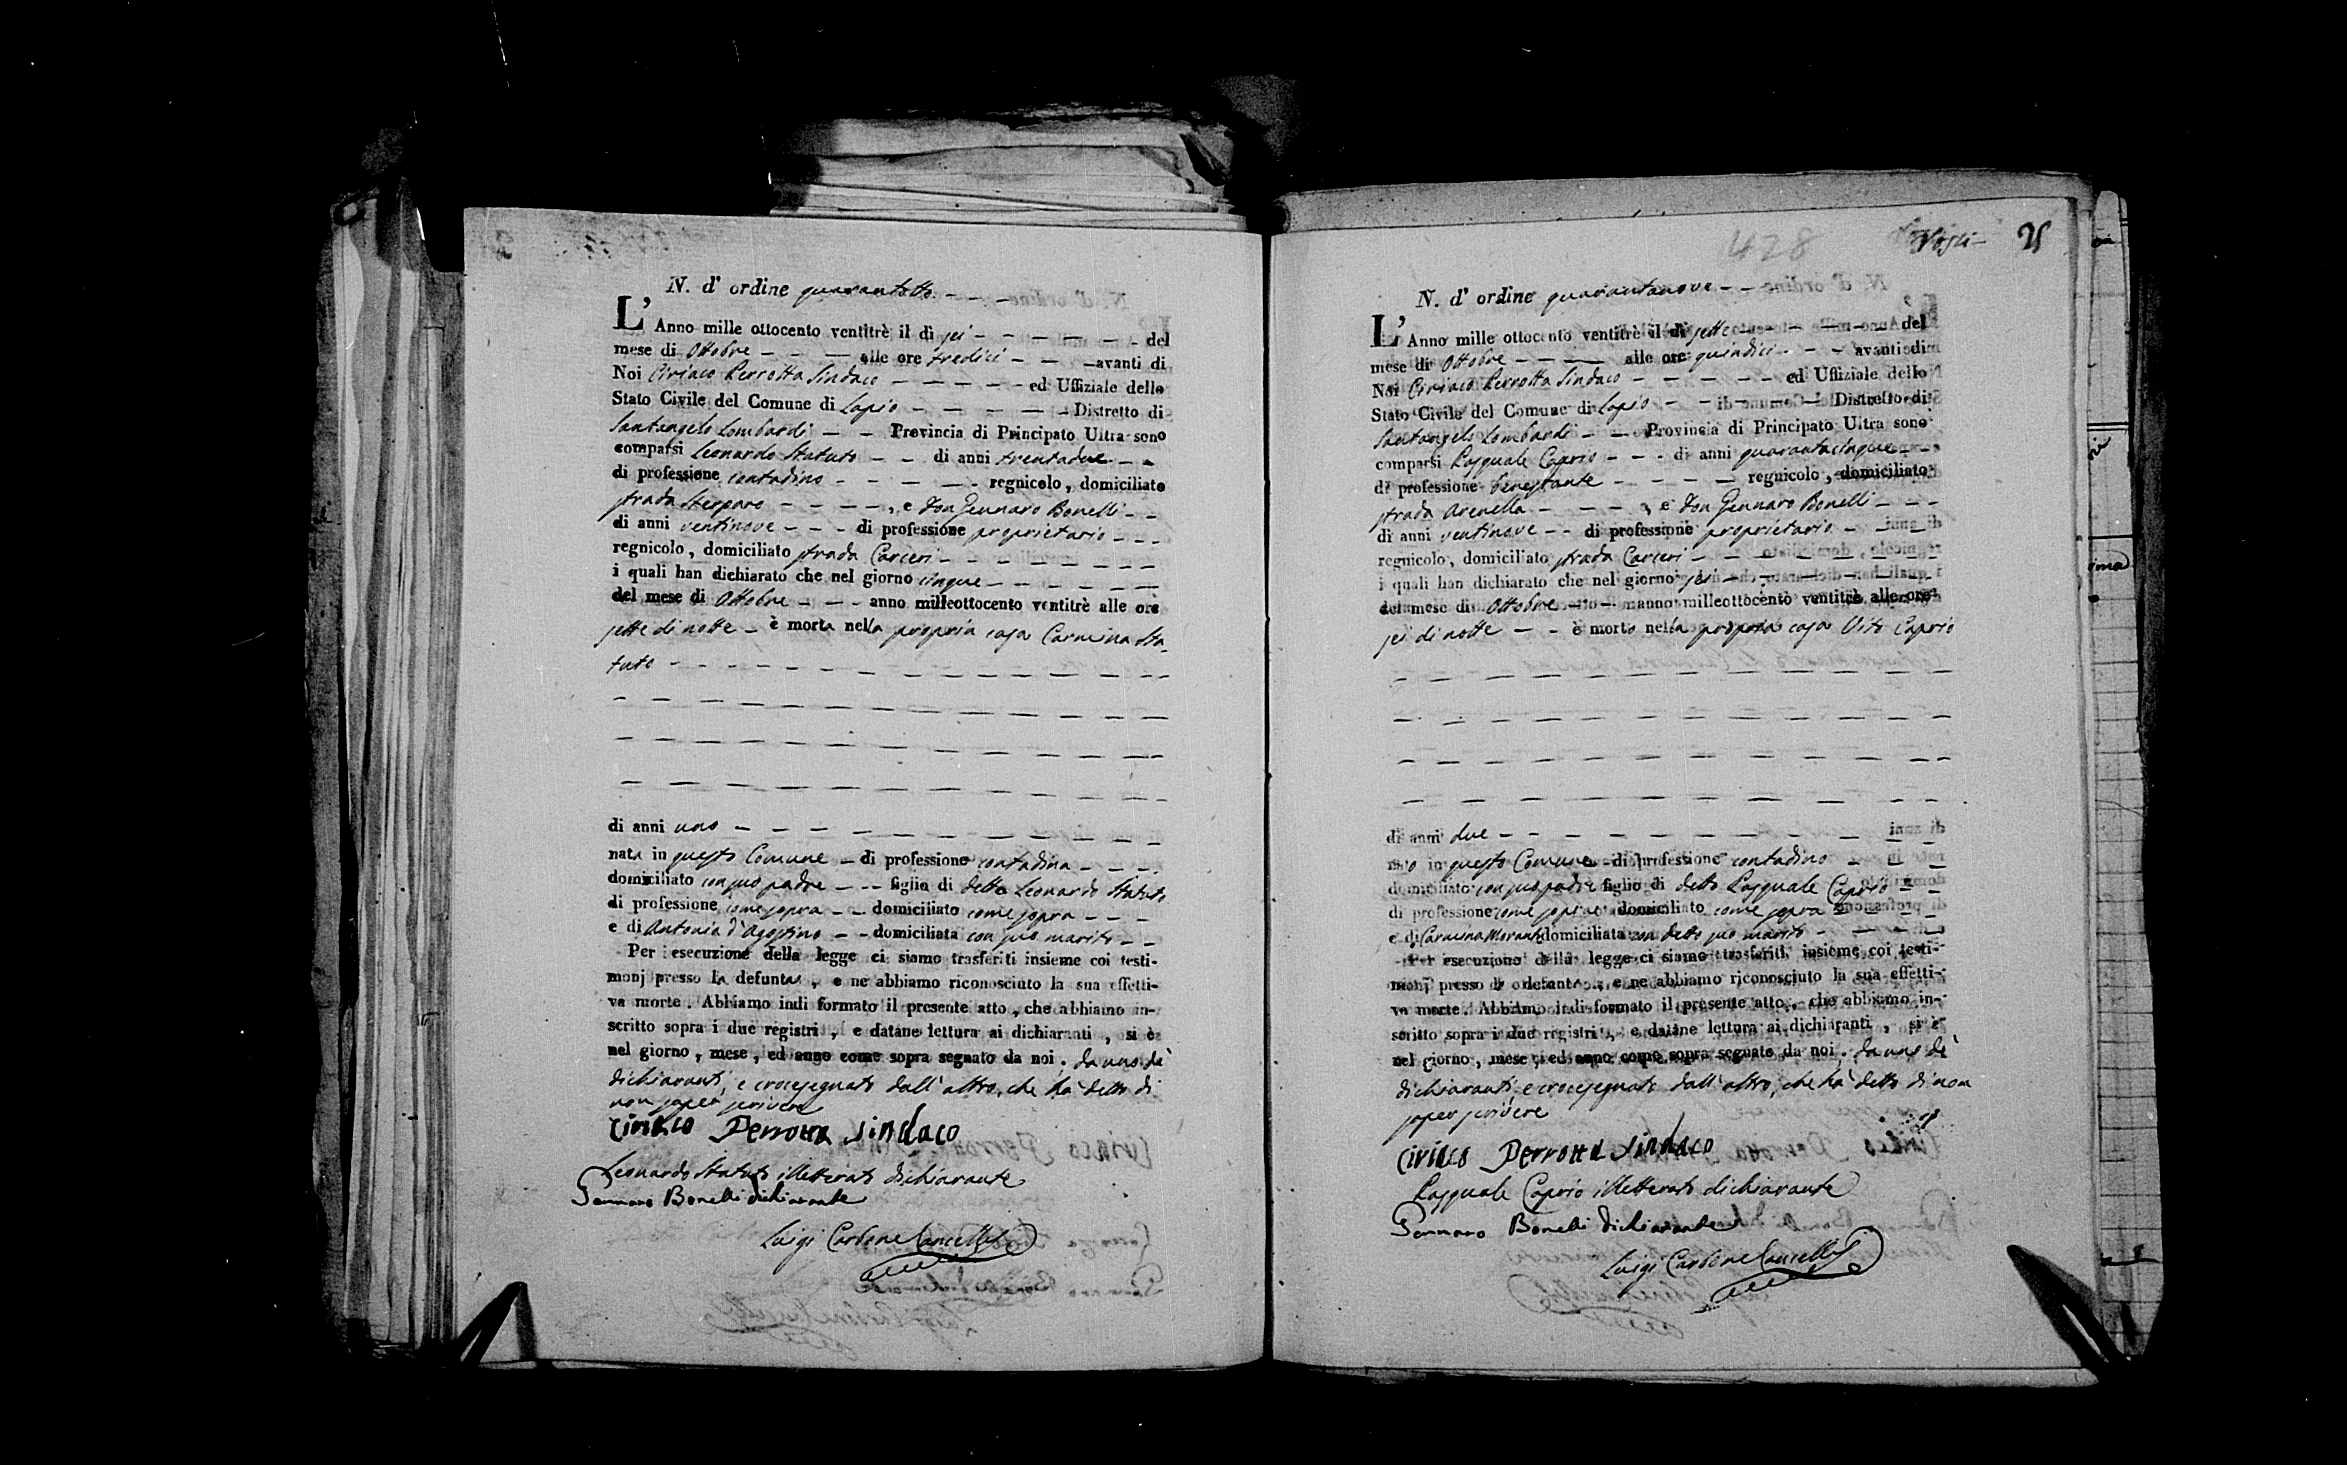 N. d' ordine quarantotto
L' Anno mille ottocento ventitrè il dì sei del
mese di Ottobre alle ore tredici avanti di
Noi Ciriaco Perrotta Sindaco ed Uffiziale dello
Stato Civile del Comune di Lapio Distretto di
Santangelo Lombardi Provincia di Principato Ultra sono
comparsi Leonardo Statuto di anni trentadue
di professione contadino regnicolo, domiciliato
strada Sterparo, e Don Gennaro Bonelli
di anni ventinove di professione proprietario
regnicolo, domiciliato strada Carceri
i quali han dichiarato che nel giorno cinque
del mese di Ottobre anno milleottocento ventitrè alle ore
sette di notte è morta nella propria casa Carmina Sta-
tuto
di anni uno
nata in questo Comune di professione contadina
domiciliato con suo padre figlia di detto Leonardo Statuto
di professione come sopra domiciliato come sopra
e di Antonia d'Agostino domiciliata con suo marito
Per esecuzione della legge ci siamo trasferiti insieme coi testi-
monj presso la defunta, e ne abbiamo riconosciuto la sua effetti-
va morte. Abbiamo indi formato il presente atto, che abbiamo in-
scritto sopra i due registri, e datane lettura ai dichiaranti, si è
nel giorno, mese, ed anno come sopra segnato da noi, da uno dè
dichiaranti, e crocesegnato dall'altro, che hà detto di
non saper scrivere
Ciriaco Perrotta Sindaco
Leonardo Statuto illetterato dichiarante
Gennaro Bonelli dichiarante
Luigi Carbone Cancell.
428
25
N. d' ordine quarantanove
L' Anno mille ottocento ventitrè il dì sette del
mese di Ottobre alle ore quindici avanti di
Noi Ciriaco Perrotta Sindaco ed Uffiziale dello
Stato Civile del Comune di Lapio Distretto di
Santangelo Lombardi Provincia di Principato Ultra sono
comparsi Pasquale Caprio di anni quarantacinque
di professione benestante regnicolo, domiciliato
strada Arenella, e Don Gennaro Bonelli
di anni ventinove di professione proprietario
regnicolo, domiciliato strada Carceri
i quali han dichiarato che nel giorno sei
del mese di Ottobre anno milleottocento ventitrè alle ore
sei di notte è morto nella propria casa Vito Caprio
di anni due
nato in questo Comune di professione contadino
domiciliato con suo padre figlio di detto Pasquale Caprio
di professione come sopra domiciliato come sopra
e di Carmina Morante domiciliata con detto suo marito
Per esecuzione della legge ci siamo trasferiti insieme coi testi-
monj presso il defunto, e ne abbiamo riconosciuto la sua effetti-
va morte. Abbiamo indi formato il presente atto, che abbiamo in-
scritto sopra i due registri, e datane lettura ai dichiaranti, si è
nel giorno, mese, ed anno come sopra segnato da noi, da uno dè
dichiaranti, e crocesegnato dall'altro, che hà detto di non
saper scrivere
Ciriaco Perrotta Sindaco
Pasquale Caprio illetterato dichiarante
Gennaro Bonelli dichiarante
Luigi Carbone Cancell.